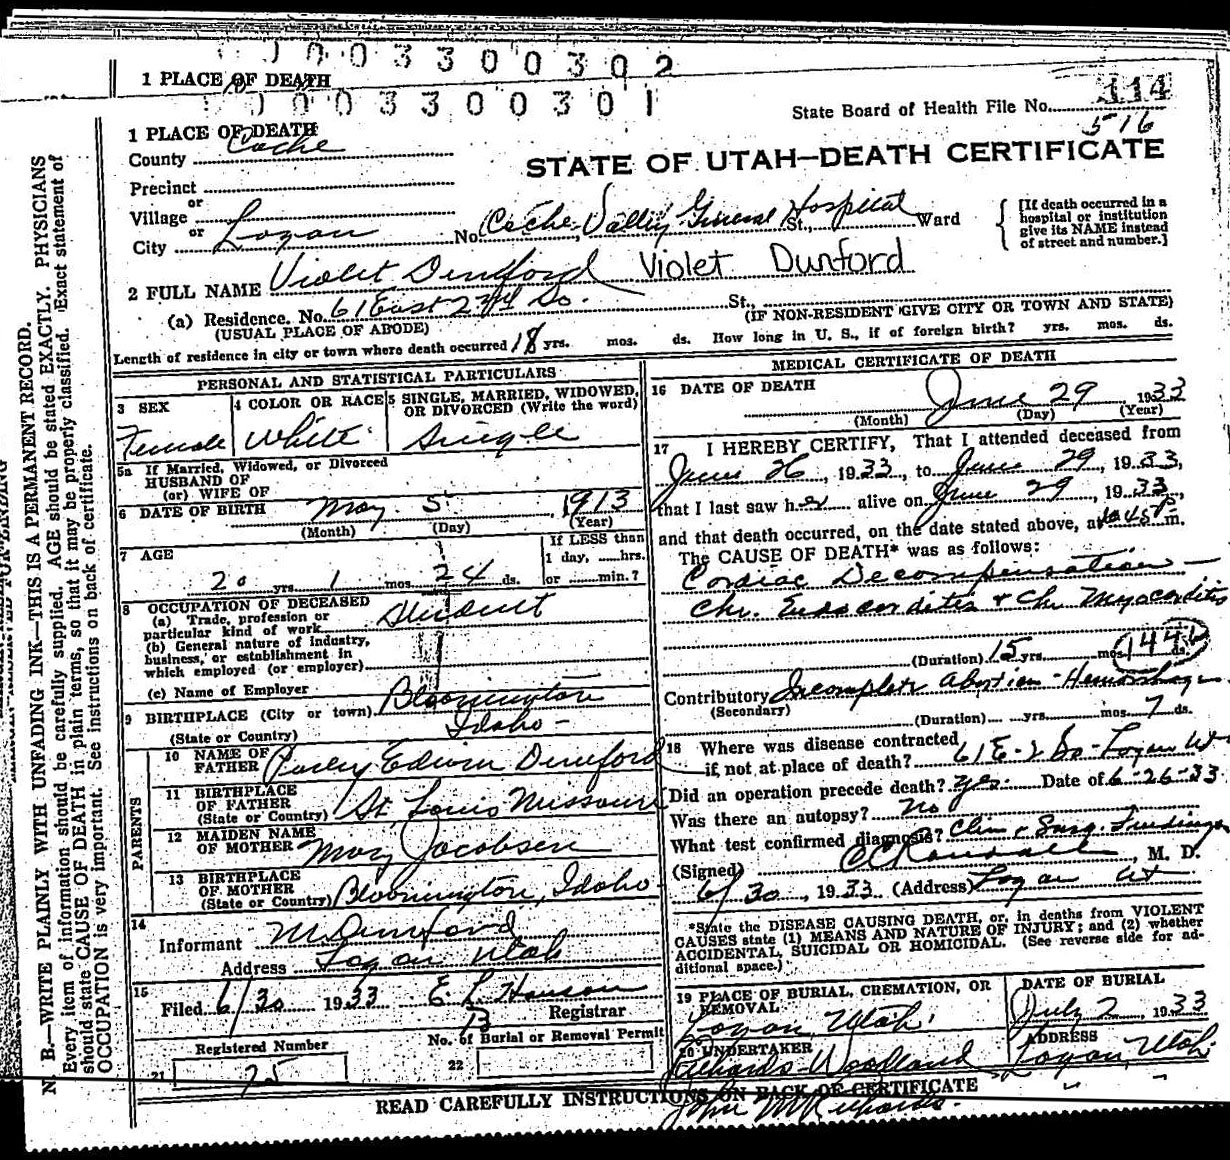 0003300302
1 PLACE OF DEATH
0003300301
State Board of Health File No. 114
516
1 PLACE OF DEATH
County Cache
STATE OF UTAH—DEATH CERTIFICATE
Precinct
or
Village
or
City Logan No. Cache Valley General Hospital St., Ward
[If death occurred in a hospital or institution give its NAME instead of street and number.]
2 FULL NAME Violet Dunford Violet Dunford
(a) Residence. No. 61 East 2nd So. St.,
(USUAL PLACE OF ABODE) (IF NON-RESIDENT GIVE CITY OR TOWN AND STATE)
Length of residence in city or town where death occurred 18 yrs. mos. ds. How long in U. S., if of foreign birth? yrs. mos. ds.
PERSONAL AND STATISTICAL PARTICULARS
3 SEX 4 COLOR OR RACE 5 SINGLE, MARRIED, WIDOWED, OR DIVORCED (Write the word)
Female White Single
5a If Married, Widowed, or Divorced
HUSBAND OF
(or) WIFE OF
6 DATE OF BIRTH May 5 1913
(Month) (Day) (Year)
7 AGE
If LESS than
1 day, ......hrs.
20 yrs. 1 mos. 24 ds. or ......min.?
8 OCCUPATION OF DECEASED
(a) Trade, profession or
particular kind of work Student
(b) General nature of industry,
business, or establishment in
which employed (or employer)
(c) Name of Employer
9 BIRTHPLACE (City or town) Bloomington
(State or Country) Idaho-
PARENTS
10 NAME OF FATHER Edwin Dunford
11 BIRTHPLACE OF FATHER
(State or Country) St. Louis Missouri
12 MAIDEN NAME OF MOTHER May Jacobsen
13 BIRTHPLACE OF MOTHER
(State or Country) Bloomington, Idaho
14
Informant M Dunford
Address Logan Utah
15
Filed 6/30 1933 E. L. Hanson
Registrar
13
No. of Burial or Removal Permit
Registered Number
21 75 22
MEDICAL CERTIFICATE OF DEATH
16 DATE OF DEATH
June 29, 1933
(Month) (Day) (Year)
17 I HEREBY CERTIFY, That I attended deceased from
June 26, 1933, to June 29, 1933,
that I last saw her alive on June 29, 1933,
and that death occurred, on the date stated above, at 10:45 P m.
The CAUSE OF DEATH* was as follows:
Cardiac Decompensation—
Chr. Endocarditis & Chr Myocarditis
(Duration) 15 yrs. mos. ds.
144b
Contributory Incomplete Abortion - Hemorrhage
(Secondary)
(Duration) yrs. mos. 7 ds.
18 Where was disease contracted
if not at place of death? 61 E-2 So-Logan Ut
Did an operation precede death? Yes. Date of 6-26-33
Was there an autopsy? No
What test confirmed diagnosis? Clin & Surg. Findings
(Signed) CC Randall, M. D.
6/30, 1933 (Address) Logan Ut
*State the DISEASE CAUSING DEATH, or, in deaths from VIOLENT
CAUSES state (1) MEANS AND NATURE OF INJURY; and (2) whether
ACCIDENTAL, SUICIDAL OR HOMICIDAL. (See reverse side for ad-
ditional space.)
19 PLACE OF BURIAL, CREMATION, OR REMOVAL DATE OF BURIAL
Logan, Utah. July 2, 1933
20 UNDERTAKER ADDRESS
Richards Woodland Logan, Utah
READ CAREFULLY INSTRUCTIONS ON BACK OF CERTIFICATE
John W Richards.
N. B.—WRITE PLAINLY WITH UNFADING INK—THIS IS A PERMANENT RECORD.
Every item of information should be carefully supplied. AGE should be stated EXACTLY. PHYSICIANS
should state CAUSE OF DEATH in plain terms, so that it may be properly classified. Exact statement of
OCCUPATION is very important. See instructions on back of certificate.